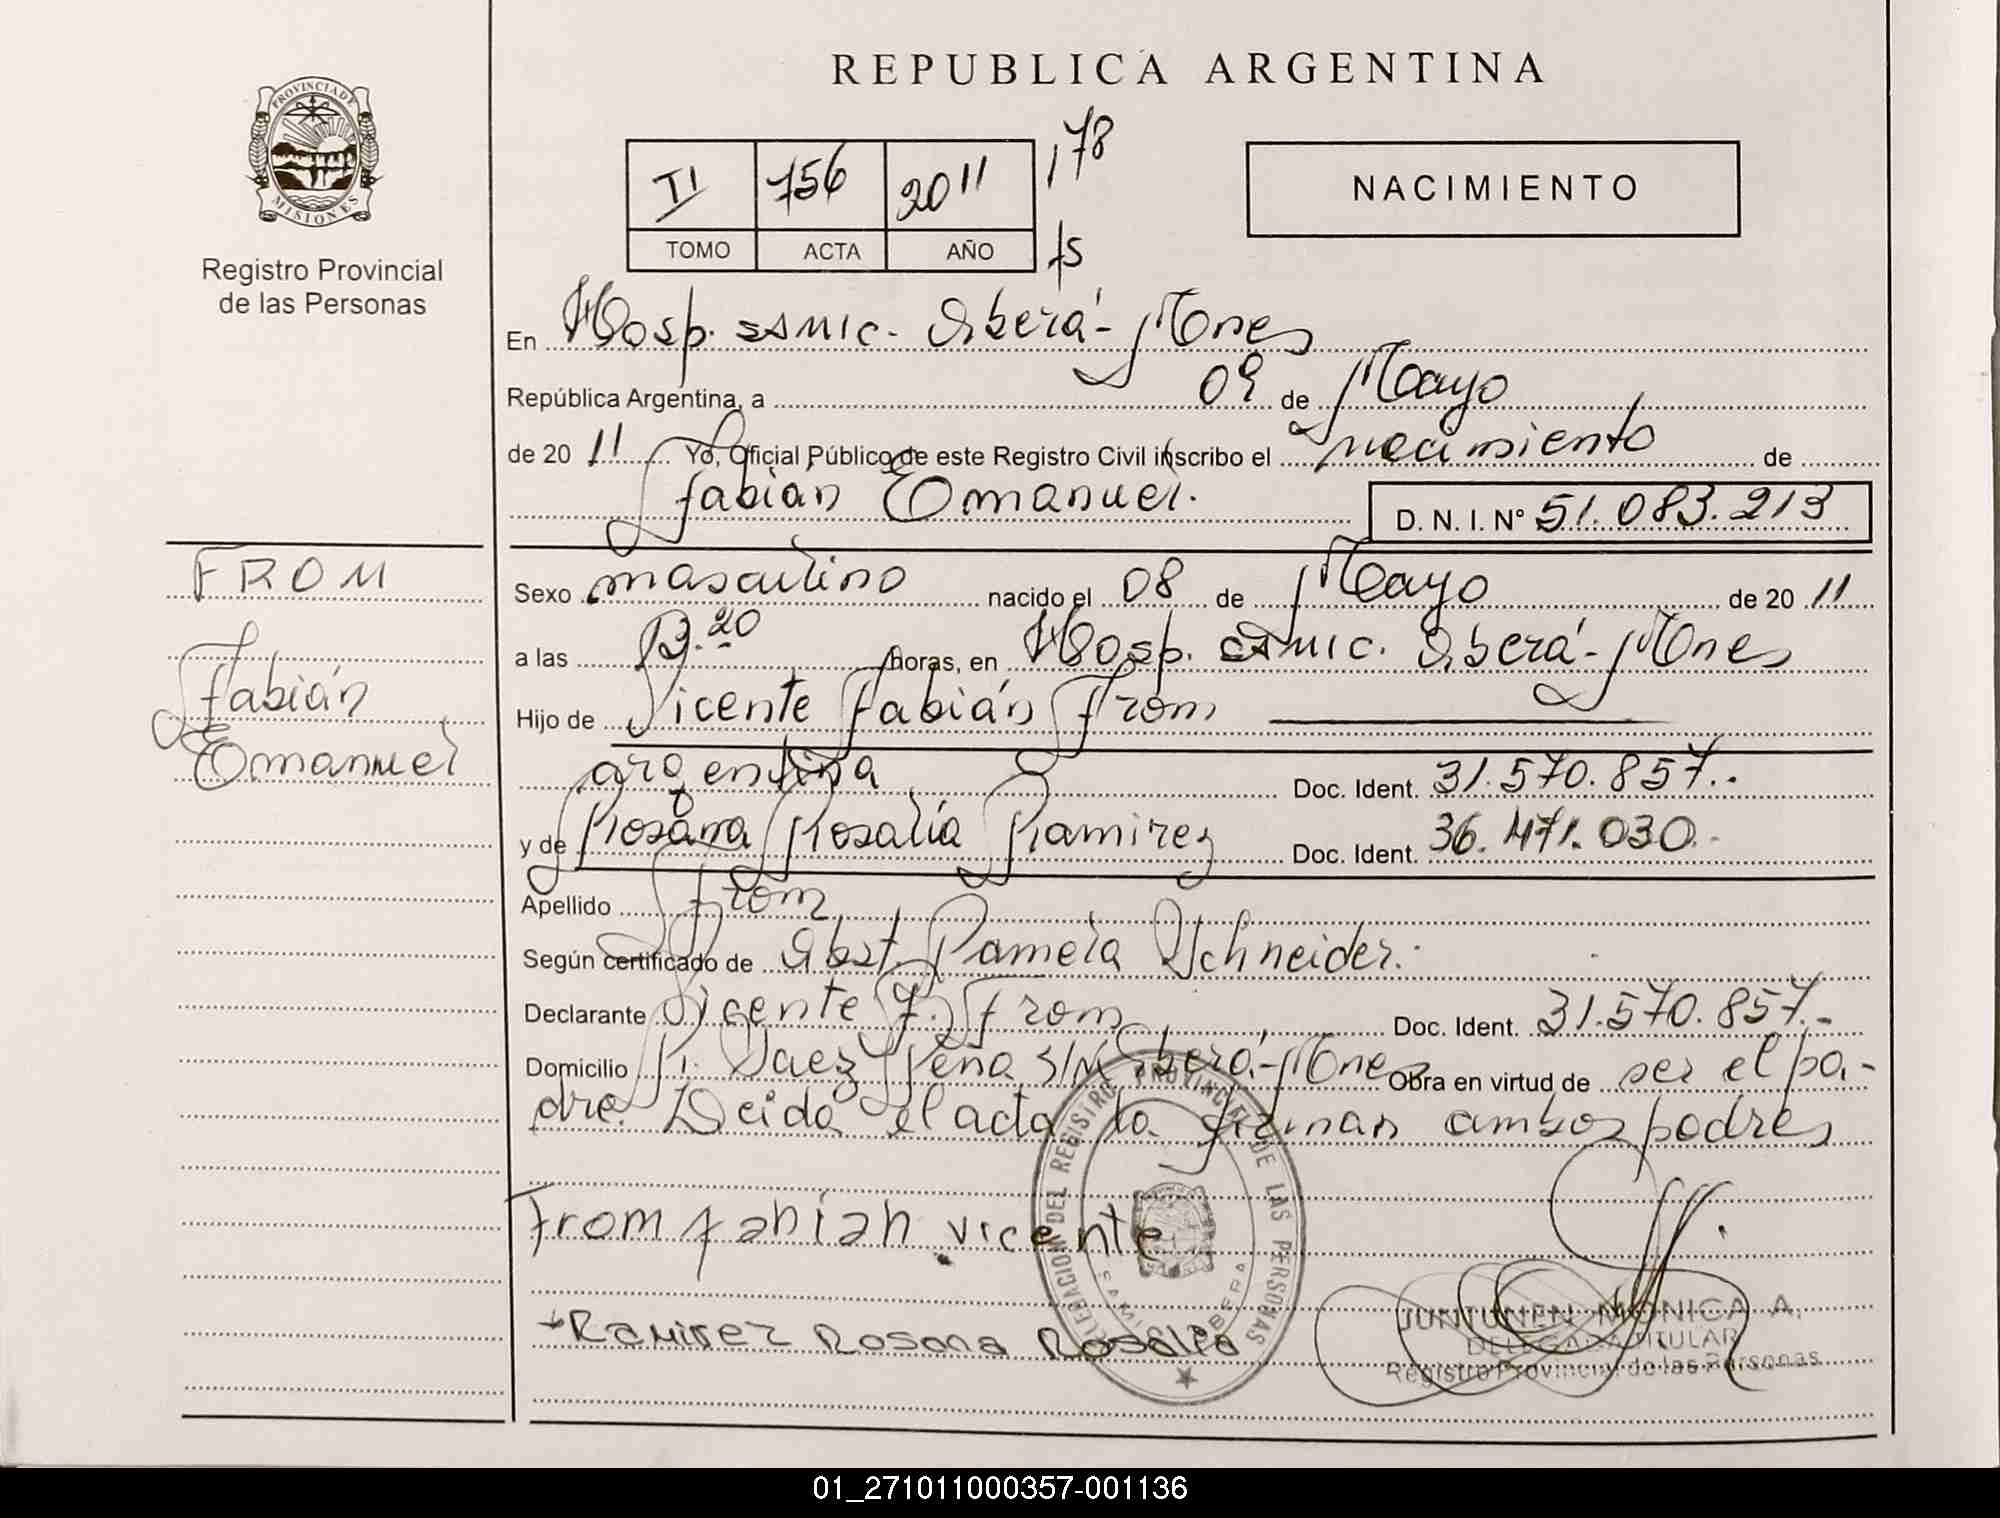 REPUBLICA ARGENTINA
PROVINCIA DE
MISIONES
Registro Provincial
de las Personas
II 756 2011 178
TOMO ACTA AÑO fs
NACIMIENTO
En Hosp. SAMIC. Oberá - Mnes
República Argentina, a 09 de Mayo
de 20 11 Yo, Oficial Público de este Registro Civil inscribo el nacimiento de
Fabián Emanuel. D. N. I. N° 51.083.213
FROM
Fabián
Emanuel
Sexo masculino nacido el 08 de Mayo de 20 11
a las 13.20 horas, en Hosp. SAMIC. Oberá - Mnes
Hijo de Vicente Fabián From
argentina Doc. Ident. 31.570.857.-
y de Rosana Rosalía Ramirez Doc. Ident. 36.471.030.-
Apellido From
Según certificado de Obst. Pamela Schneider.
Declarante Vicente F. From Doc. Ident. 31.570.857.-
Domicilio P. Saez Peña S/N Oberá - Mnes Obra en virtud de ser el pa-
dre. Leida el acta la firman ambos padres
From fabian vicente
Ramirez Rosana Rosalia
DELEGACION DEL REGISTRO PROVINCIAL DE LAS PERSONAS
SAMIC OBERA
JUNTUNEN MONICA A.
DELEGADA TITULAR
Registro Provincial de las Personas
01_271011000357-001136